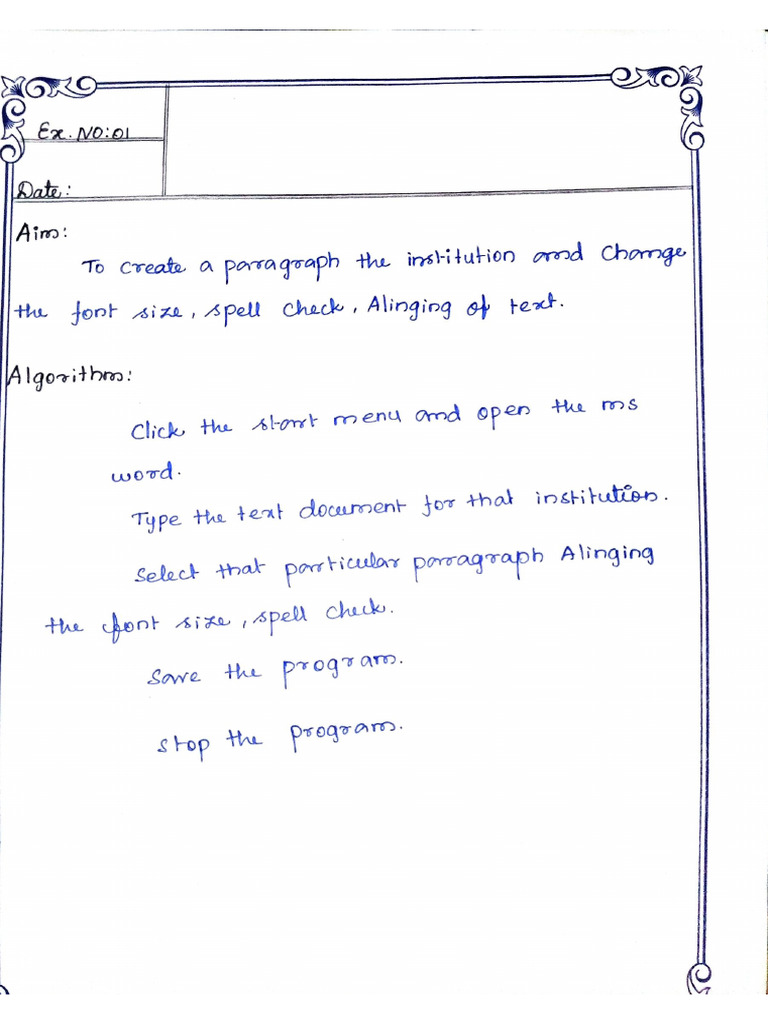 Ex. NO: 01
Date:
Aim:
To create a paragraph the institution and change
the font size, spell check, Alinging of text.
Algorithm:
Click the start menu and open the ms
word.
Type the text document for that institution.
Select that particular paragraph Alinging
the font size, spell check.
Save the program.
Stop the program.